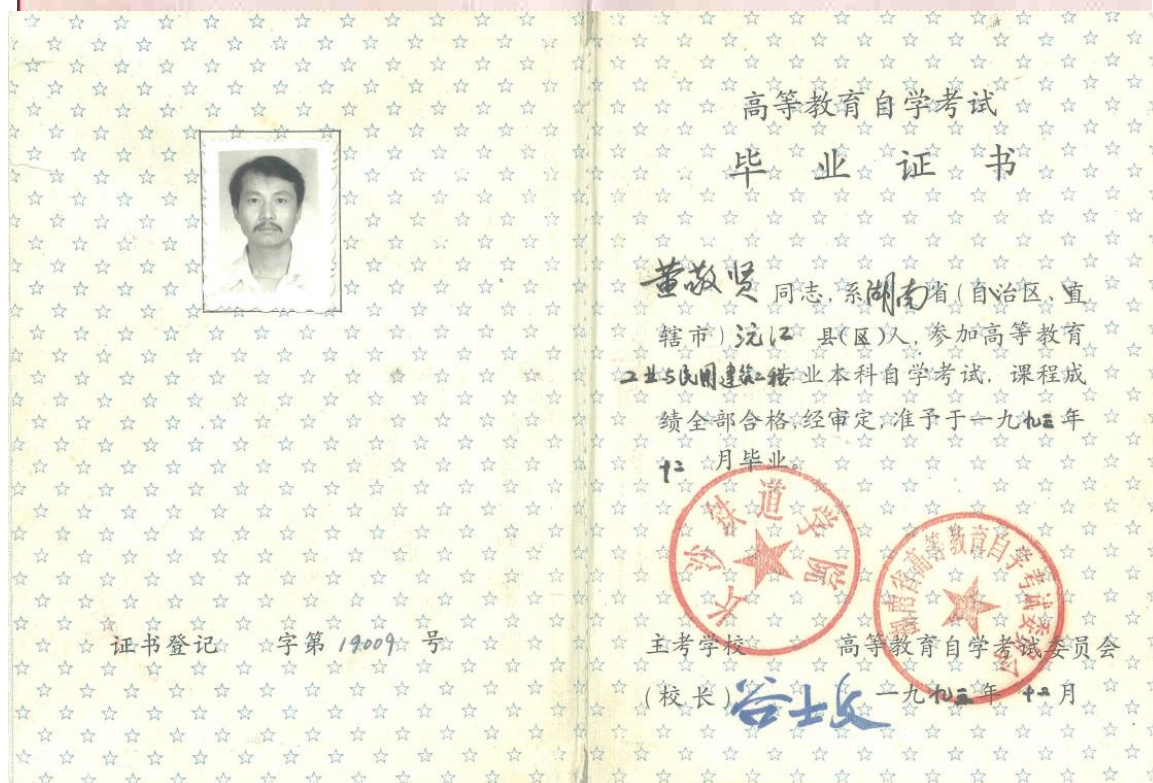 证书登记 字第 19009 号
高等教育自学考试
毕业证书
董敬贤 同志,系湖南省(自治区、直
辖市)沅江 县(区)人,参加高等教育
工业与民用建筑工程专业本科自学考试,课程成
绩全部合格,经审定,准予于一九九三年
十二 月毕业。
长沙铁道学院
湖南省高等教育自学考试委员会
主考学校 高等教育自学考试委员会
(校长) 谷士文 一九九三年 十二月